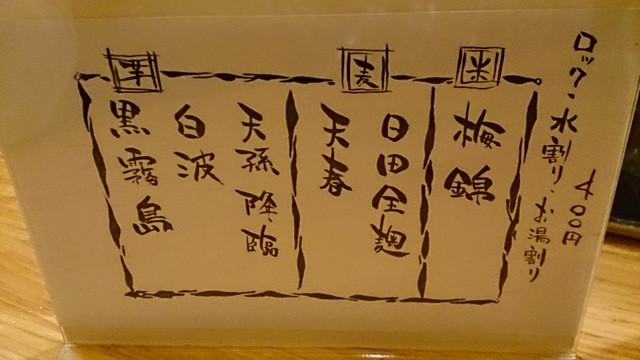 ロック・水割り・お湯割り
400円
米
梅錦
麦
日田全麹
天春
芋
天孫降臨
白波
黒霧島